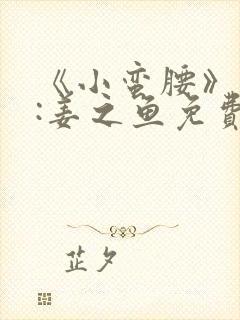 《小蛮腰》
:姜之鱼免費
芷夕